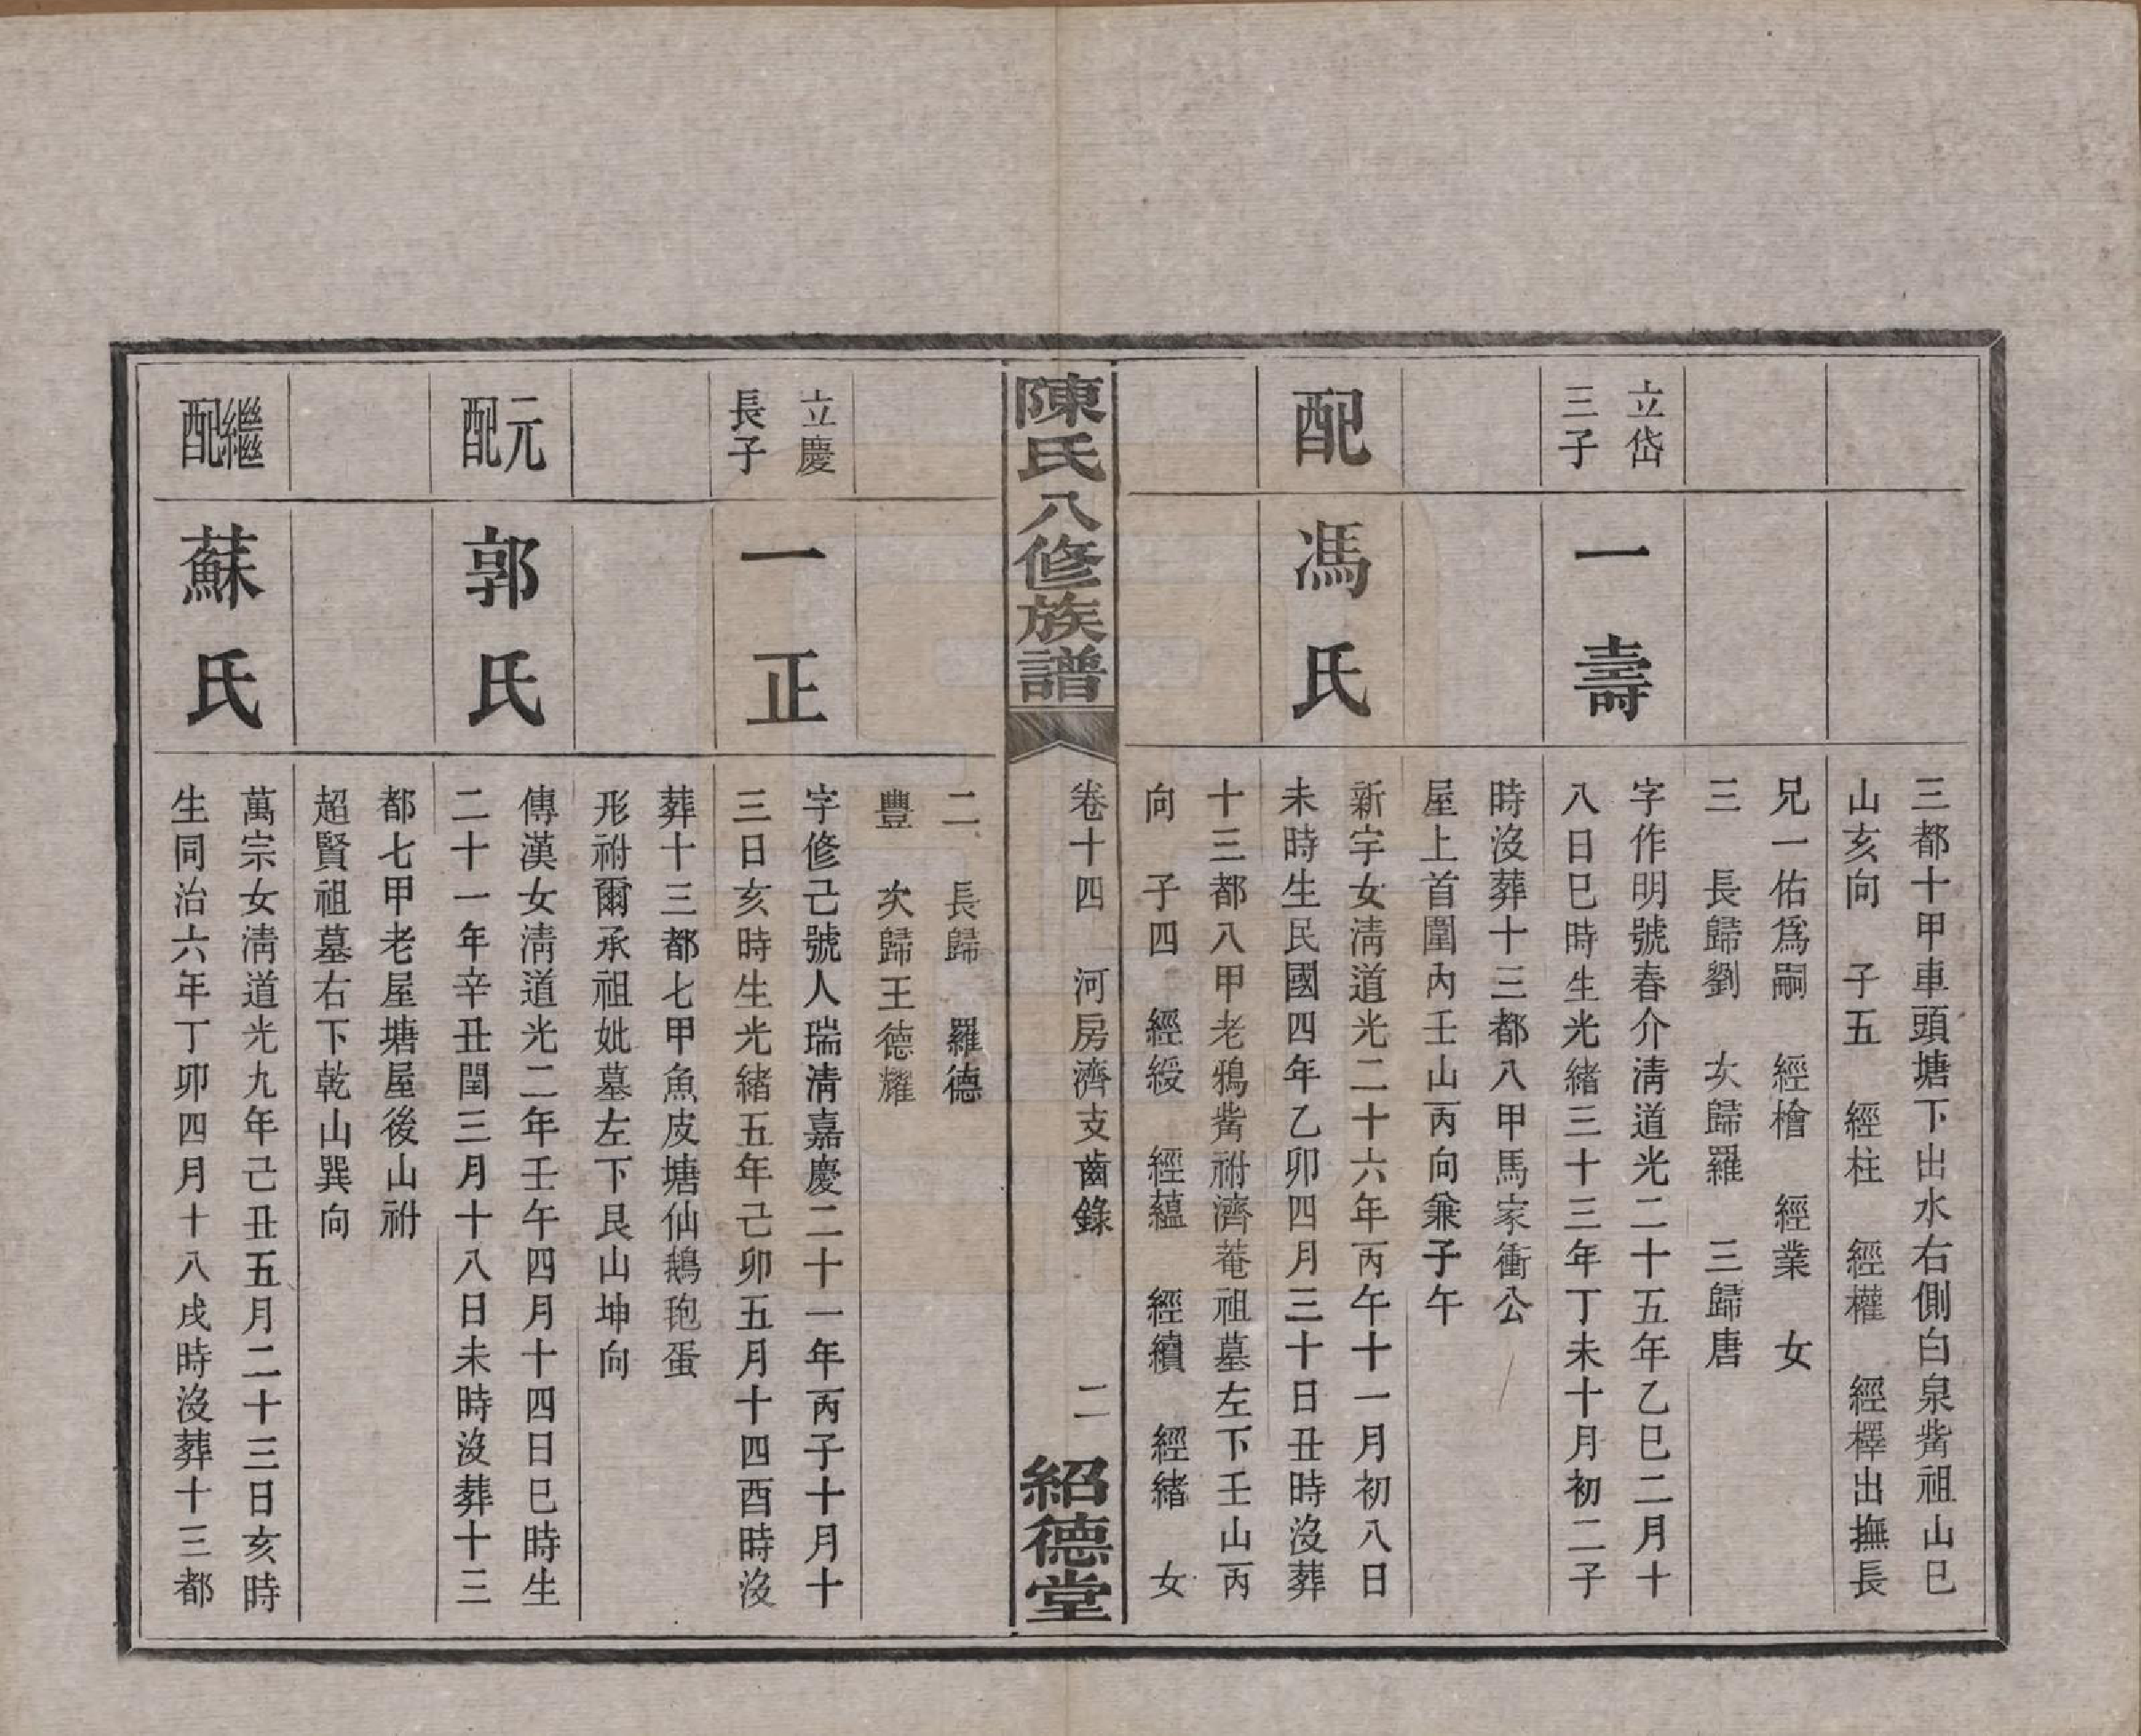 三都十甲車頭塘下出水右側白泉觜祖山巳
山亥向　子五　經柱　經權　經檡出撫長
兄一佑爲嗣　經檜　經業　女
三　長歸劉　次歸羅　三歸唐
立岱
三子
一壽
字作明號春介淸道光二十五年乙巳二月十
八日巳時生光緒三十三年丁未十月初二子
時沒葬十三都八甲馬家衝公
屋上首圍內壬山丙向兼子午
配
馮氏
新宇女淸道光二十六年丙午十一月初八日
未時生民國四年乙卯四月三十日丑時沒葬
十三都八甲老鴉觜祔濟菴祖墓左下壬山丙
向　子四　經綬　經蘊　經續　經緒　女
陳氏八修族譜
卷十四　河房濟支齒錄
二
紹德堂
二　長歸　羅德
豐　次歸王德耀
立慶
長子
一正
字修己號人瑞淸嘉慶二十一年丙子十月十
三日亥時生光緒五年己卯五月十四酉時沒
葬十三都七甲魚皮塘仙鵝抱蛋
形祔爾承祖妣墓左下艮山坤向
元配
郭氏
傳漢女淸道光二年壬午四月十四日巳時生
二十一年辛丑閏三月十八日未時沒葬十三
都七甲老屋塘屋後山祔
超賢祖墓右下乾山巽向
繼配
蘇氏
萬宗女淸道光九年己丑五月二十三日亥時
生同治六年丁卯四月十八戌時沒葬十三都